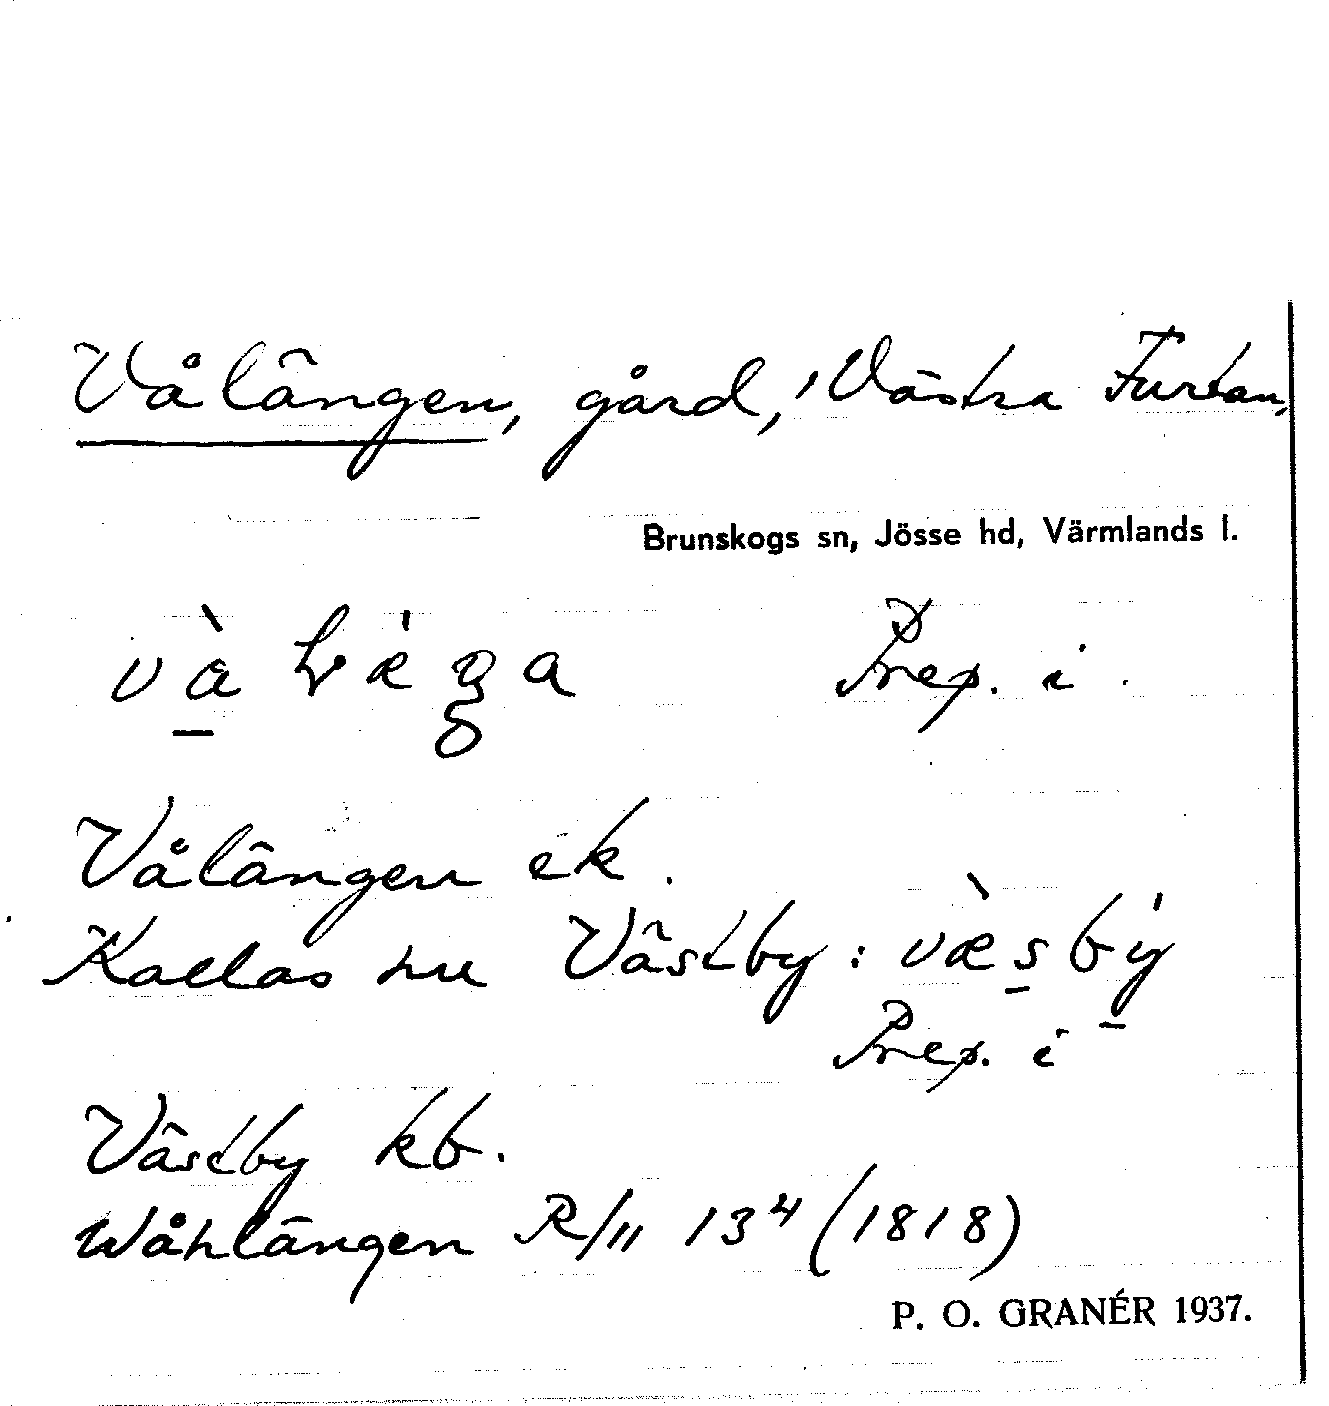 Vålängen, gård, i Västra Furtan,
Brunskogs sn, Jösse hd, Värmlands l.
Prep. i.
Vålängen ek.
Kallas nu Västby: væsby
Prep. i
Västby kb.
Wåhlängen R/11 13⁴ (1818)
P. O. GRANÉR 1937.